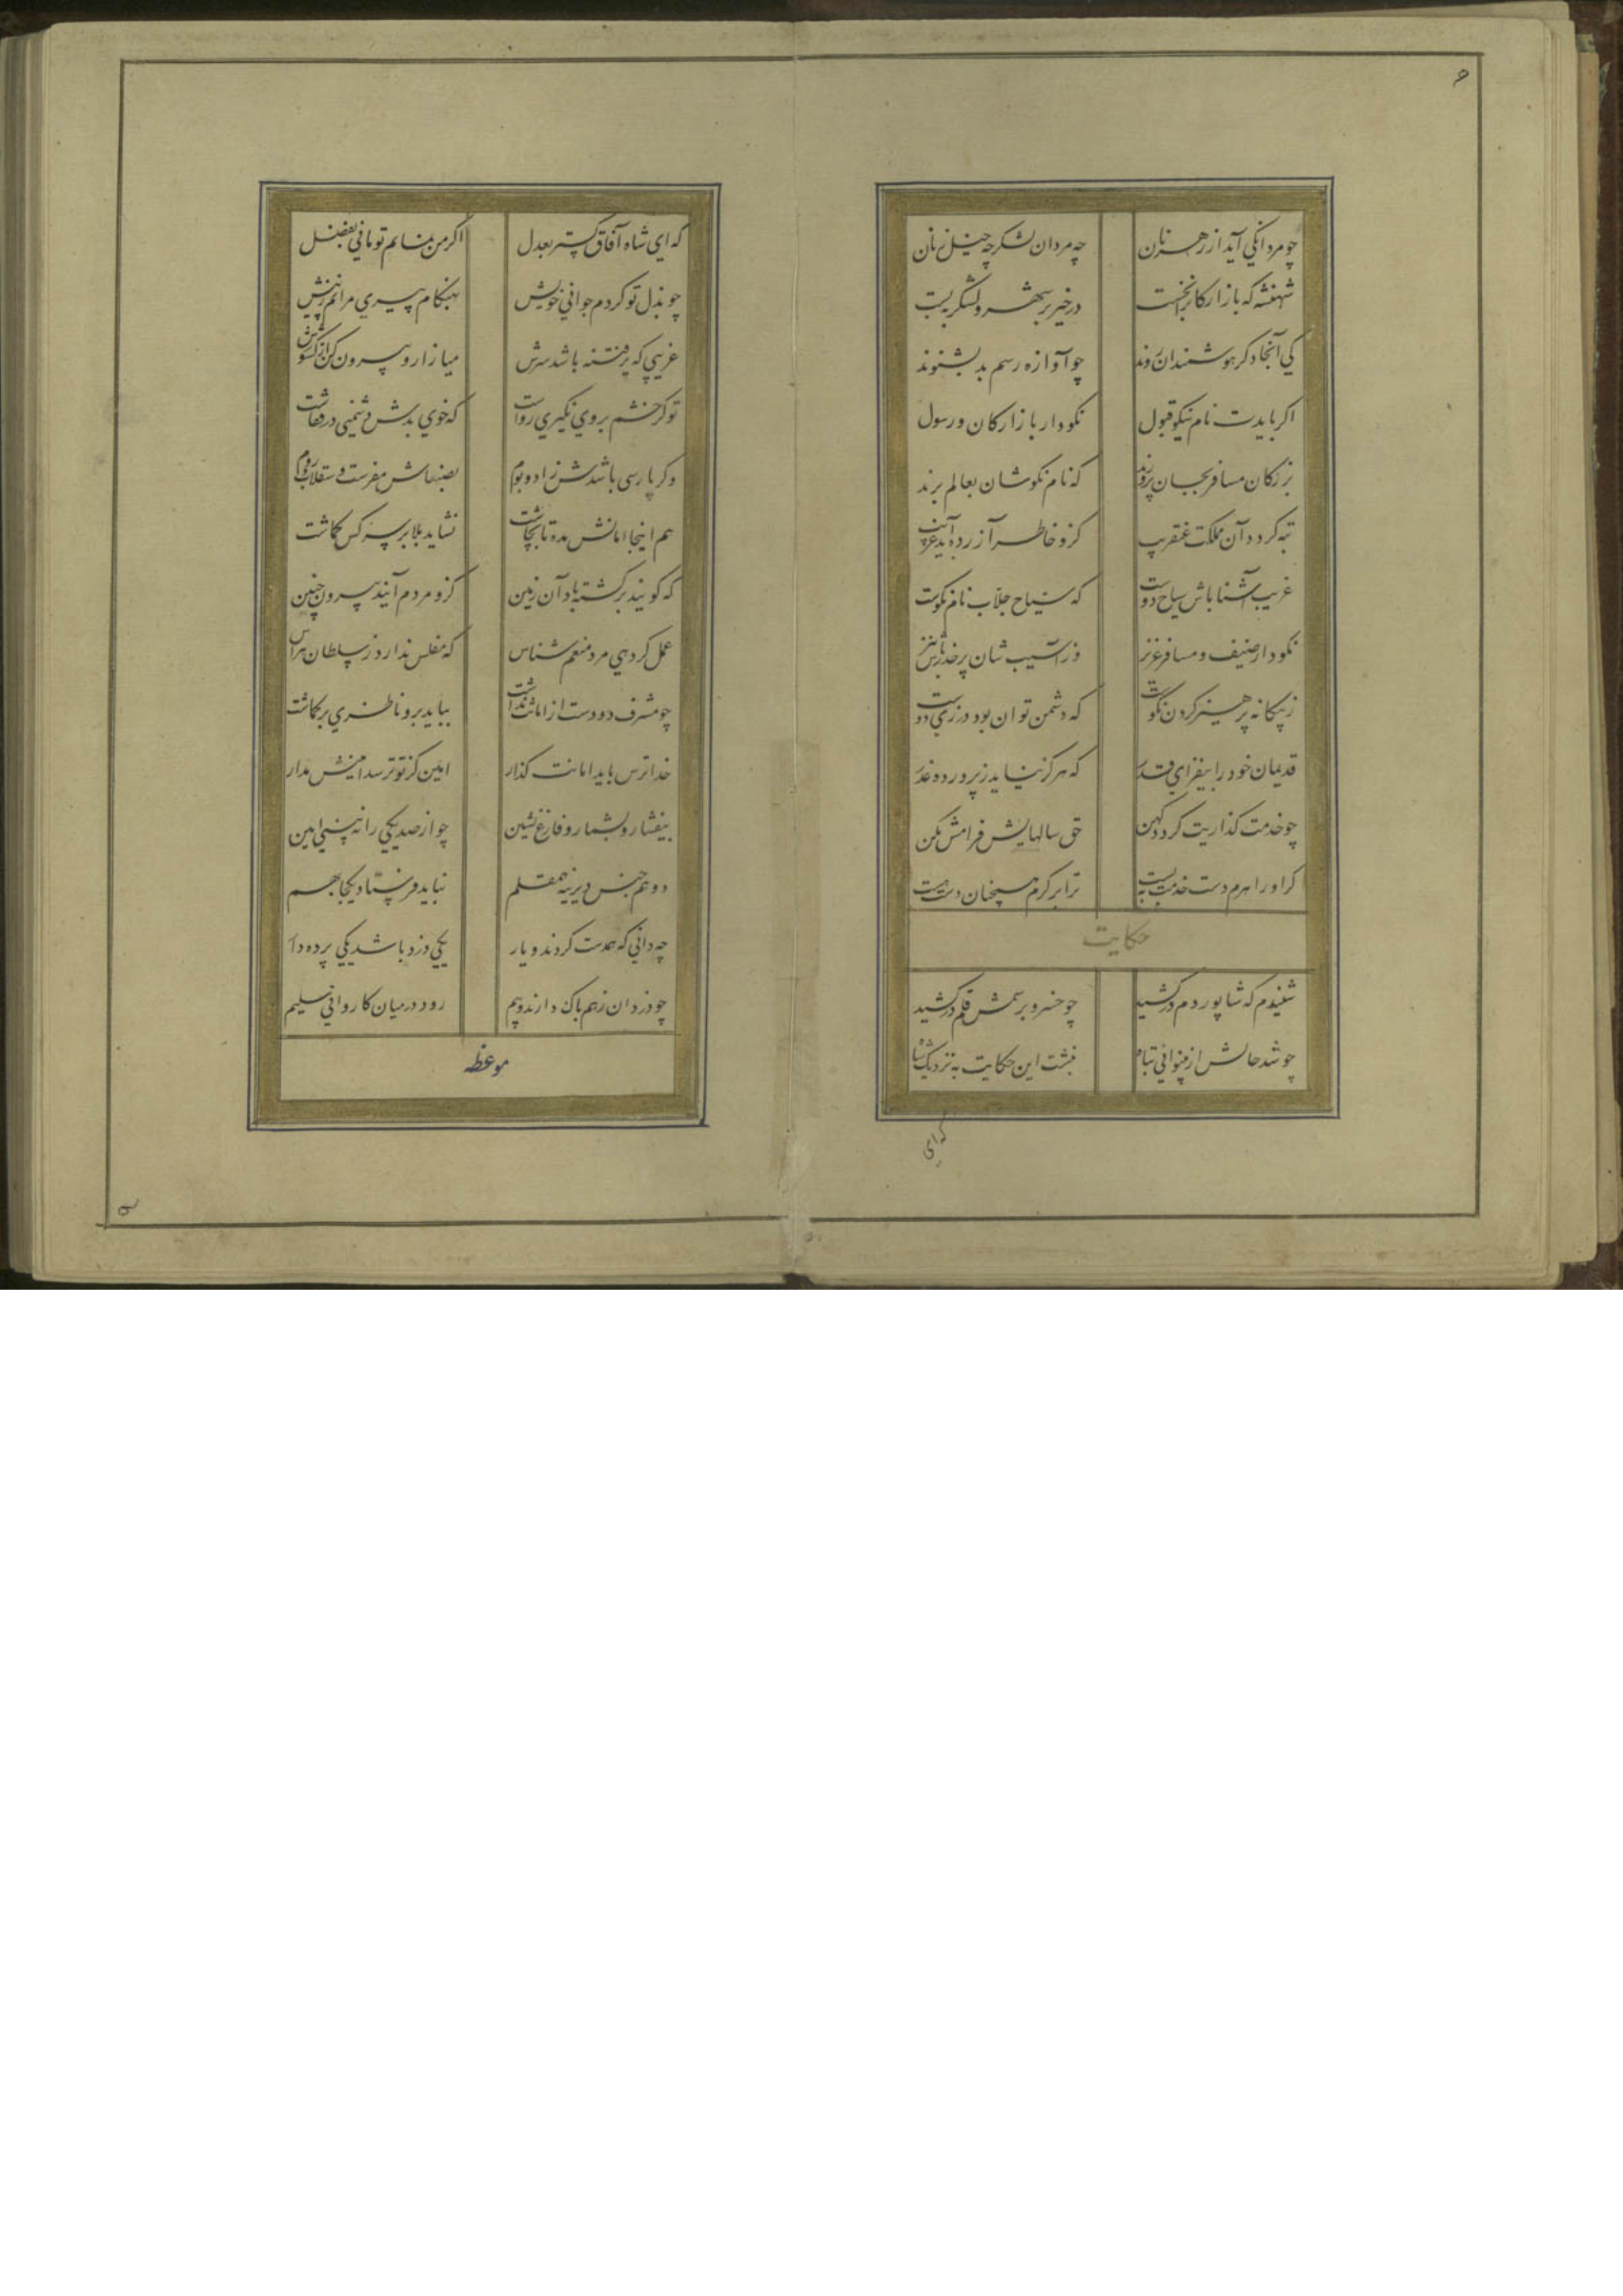 چو مردانگی آید از رهزنان چه مردان لشکر چه خیل زنان
شهنشه که بازارکانرا بخست در خیر بر شهر و لشکر ببست
کی آنجا دکر هوشمندان روند چو آوازه رسم بد بشنوند
اکر بایدت نام نیکو قبول نکودار بازارکان و رسول
بزرکان مسافر بجان پرورند که نام نکوشان بعالم برند
تبه کردد آن مملکت عنقریب کزو خاطر آزرده آید غریب
غریب آشنا باش سیاح دوست که سیاح جلاب نام نکوست
نکودار ضیف و مسافر عزیز وز آسیب شان بر حذر باش نیز
ز بیکانه پرهیز کردن نکوست که دشمن توان بود در زی دوست
قدیمان خود را بیفزای قدر که هرکز نیاید ز پرورده غدر
چو خدمت کذاریت کردد کهن حق سالهایش فرامش مکن
کر او را هرم دست خدمت ببست ترا بر کرم همچنان دست هست
حکایت
شنیدم که شاپور دم درکشید چو خسرو برسمش قلم درکشید
چو شد حالش از بینوائی تباه نبشت این حکایت به نزدیک شاه
که ای
که ای شاه آفاق کستر بعدل اکر من نمانم تو مانی بفضل
چو بذل تو کردم جوانی خویش بهنکام پیری مرانم ز پیش
غریبی که پر فتنه باشد سرش میازار و بیرون کن از کشورش
تو کر خشم بروی نکیری رواست که خوی بدش دشمنی در قفاست
وکر پارسی باشدش زاد و بوم بصنعاش مفرست و سقلاب و روم
هم اینجا امانش مده تا بچاشت نشاید بلا بر سر کس کماشت
که کویند برکشته باد آن زمین کزو مردم آیند بیرون چنین
عمل کر دهی مرد منعم شناس که مفلس ندارد ز سلطان هراس
چو مشرف دو دست از امانت بداشت بباید برو ناظری برکماشت
خدا ترس باید امانت کذار امین کز تو ترسد امینش مدار
بیفشار و بشمار و فارغ نشین چو از صد یکی را نه بینی امین
دو هم جنس دیرینه همقلم نباید فرستاد یکجا بهم
چه دانی که همدست کردند و یار یکی دزد باشد یکی پرده دار
چو دزدان زهم باک دارند و بیم رود در میان کاروانی سلیم
موعظه